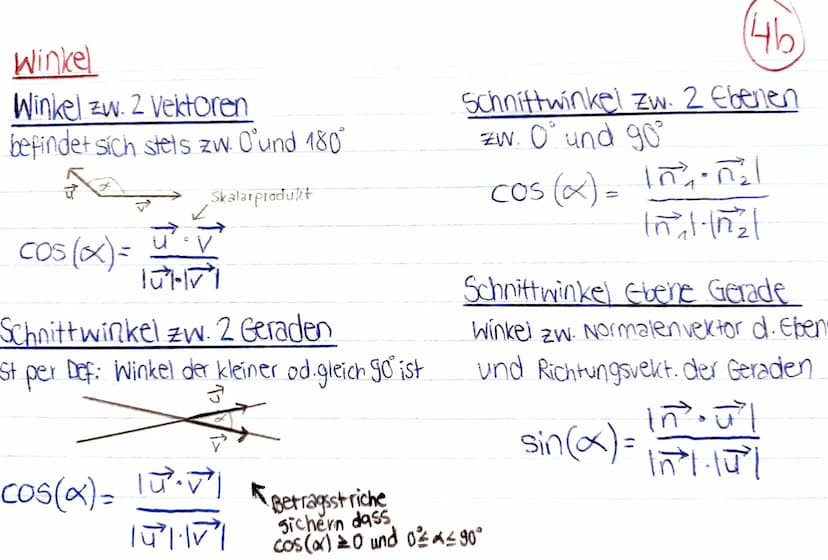 4b
Winkel
Winkel zw. 2 Vektoren
befindet sich stets zw. 0° und 180°
u⃗ α v⃗ Skalarprodukt
cos(α) = u⃗ · v⃗ / |u⃗|·|v⃗|
Schnittwinkel zw. 2 Geraden
st per Def.: Winkel der kleiner od. gleich 90° ist
u⃗
α
v⃗
cos(α) = |u⃗ · v⃗| / |u⃗|·|v⃗|
Betragsstriche
sichern dass
cos(α) ≥ 0 und 0° ≤ α ≤ 90°
Schnittwinkel zw. 2 Ebenen
zw. 0° und 90°
cos(α) = |n⃗₁ · n⃗₂| / |n⃗₁|·|n⃗₂|
Schnittwinkel Ebene Gerade
Winkel zw. Normalenvektor d. Eben
und Richtungsvekt. der Geraden
sin(α) = |n⃗ · u⃗| / |n⃗|·|u⃗|